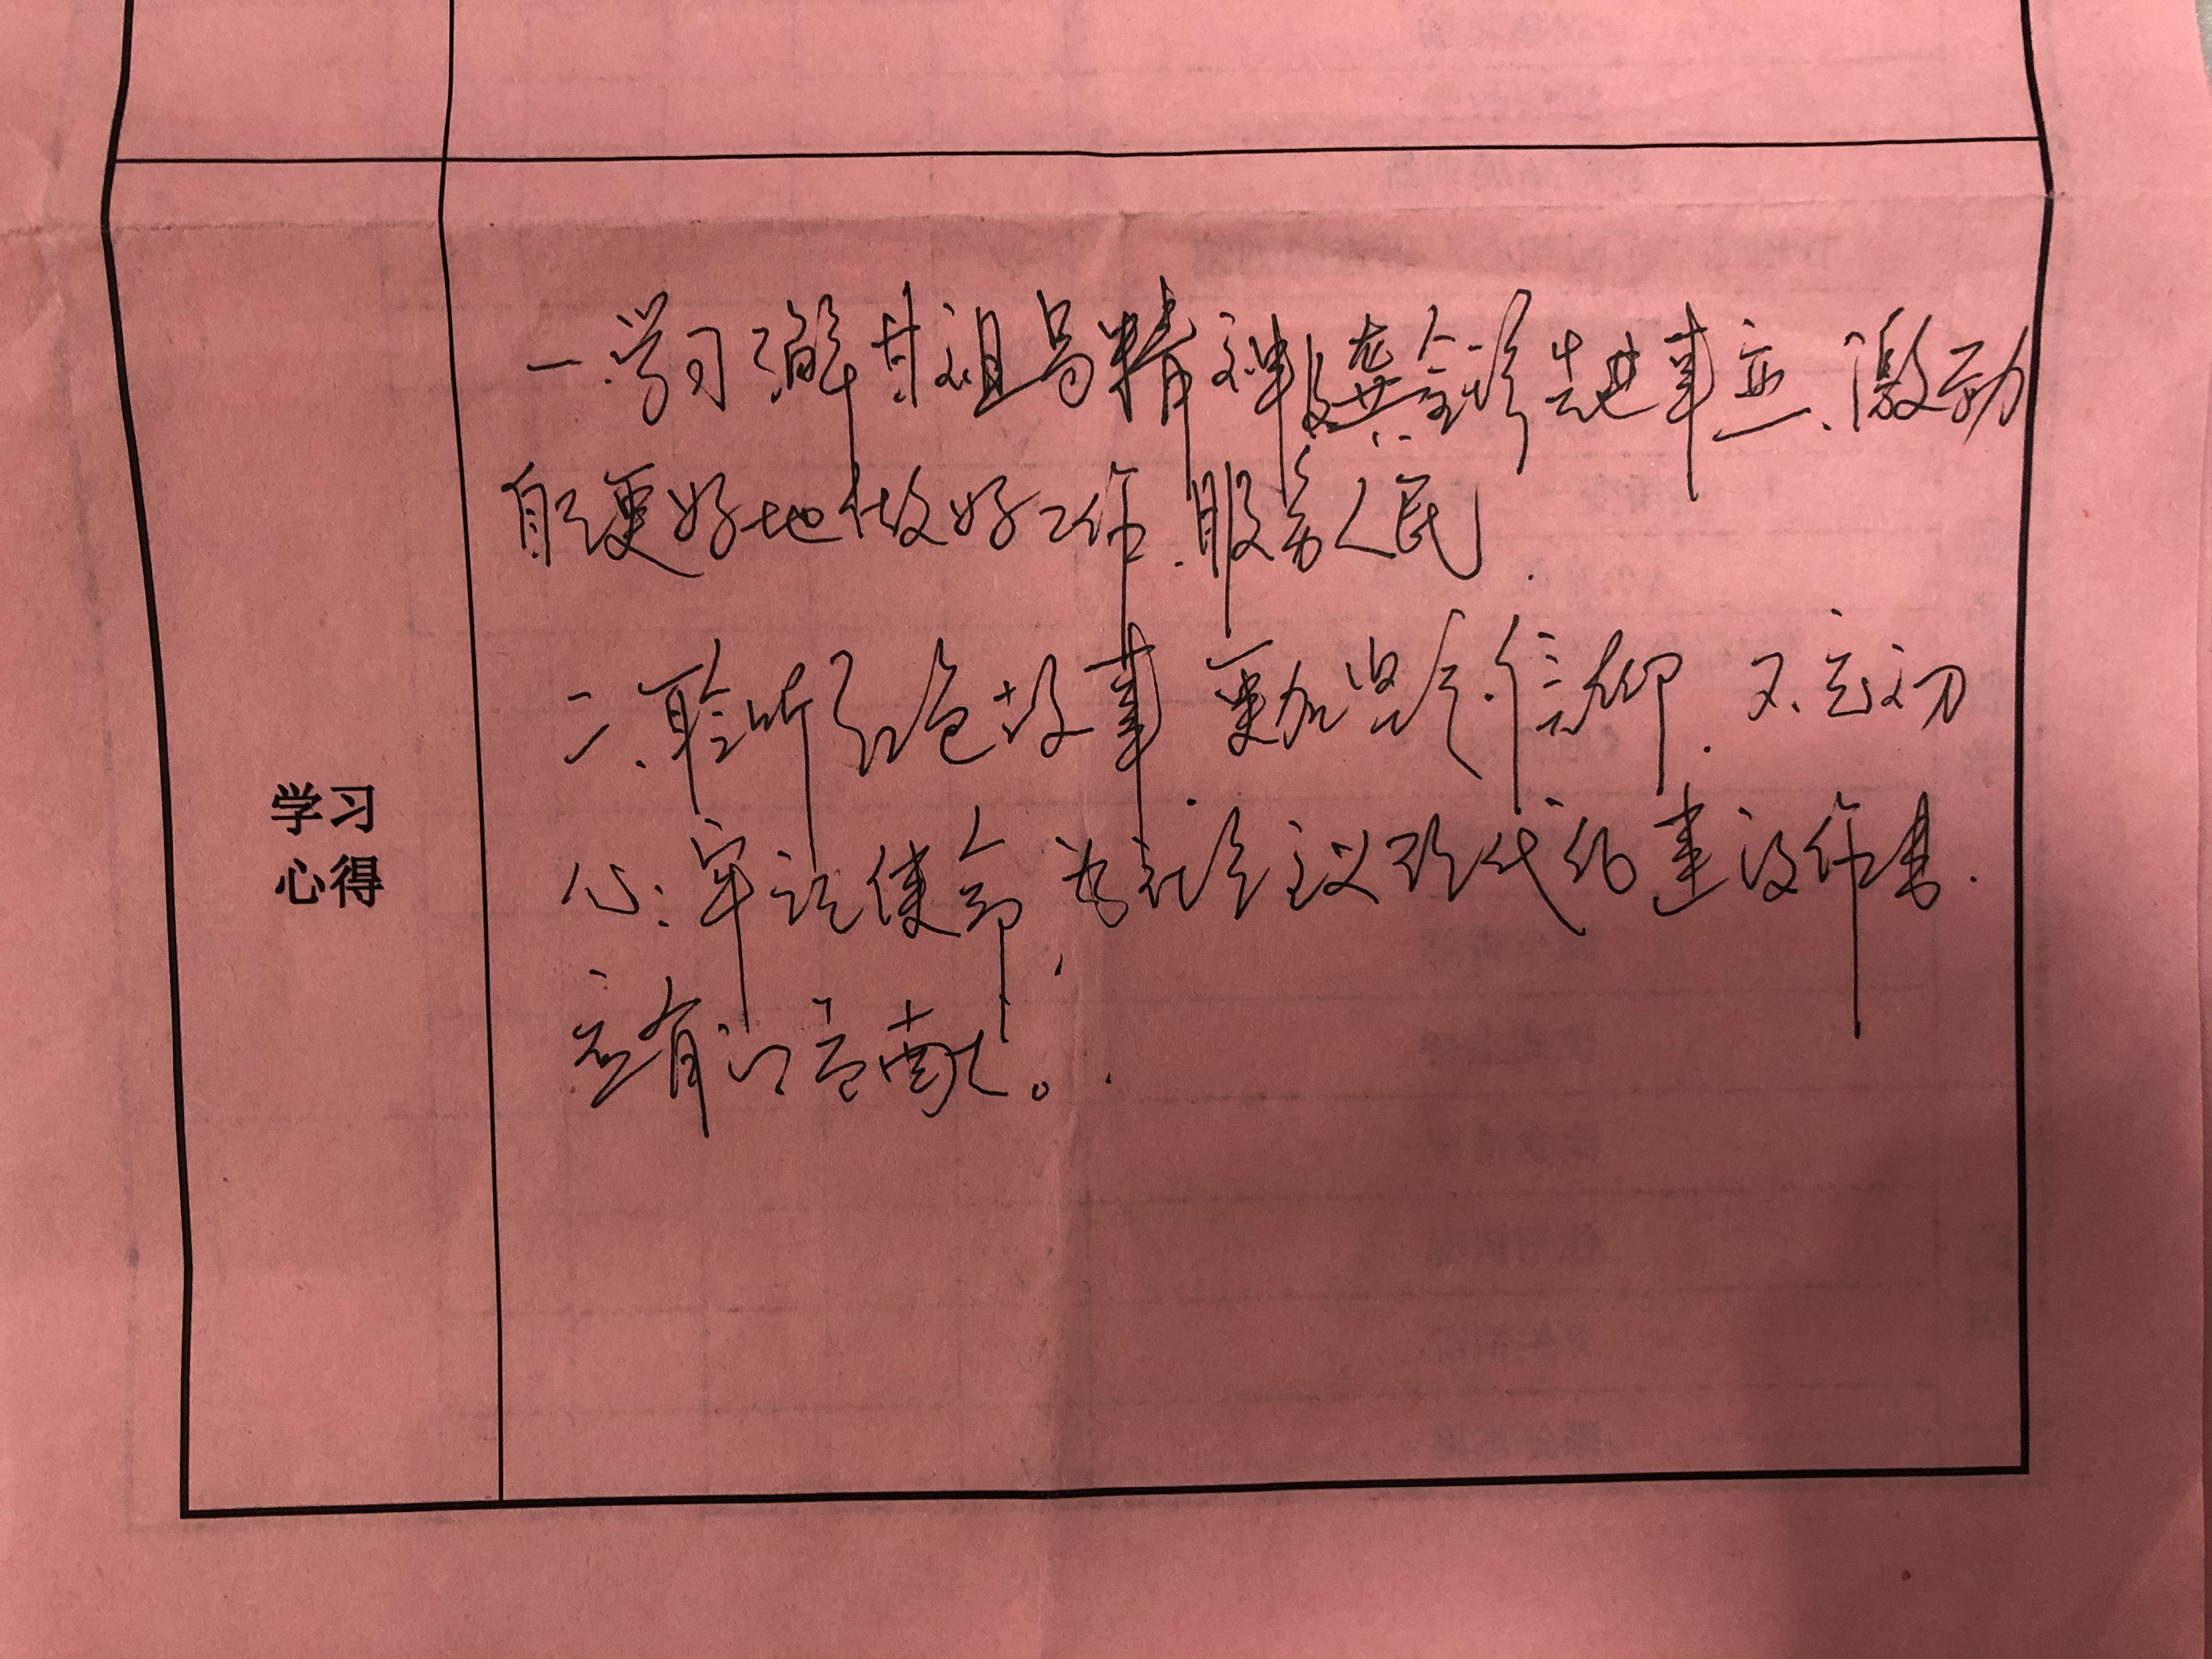 学习
心得
一.学习了解甘祖昌精神及龚全珍先进事迹、激励
自己更好地做好工作.服务人民.
二、聆听红色故事 更加坚定信仰.不忘初
心:牢记使命,为社会主义现代化建设作出.
应有的贡献。.